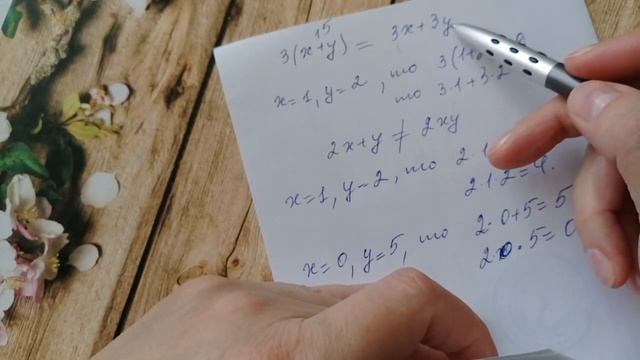 15
3(x+y) = 3x+3y
x=1, y=2, то 3(1+
то 3·1+3·2
2x+y ≠ 2xy
x=1, y=2, то 2·1
2·1·2=4.
x=0, y=5, то 2·0+5=5
2·0·5=0